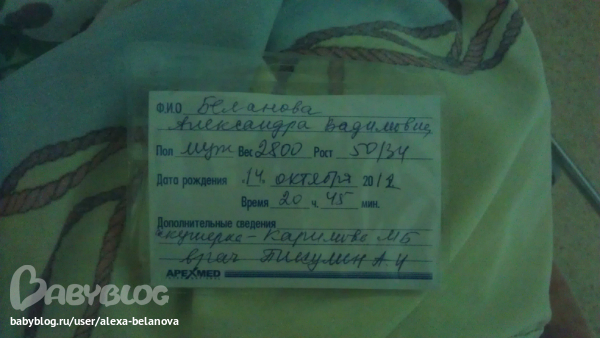 Ф.И.О Беланова
Александра Вадимовна
Пол муж Вес 2800 Рост 50/34
Дата рождения 14 октября 2012
Время 20 ч. 45 мин.
Дополнительные сведения
акушерка - Каримова МБ
врач Пикулин А И
APEXMED
BABYBLOG
babyblog.ru/user/alexa-belanova